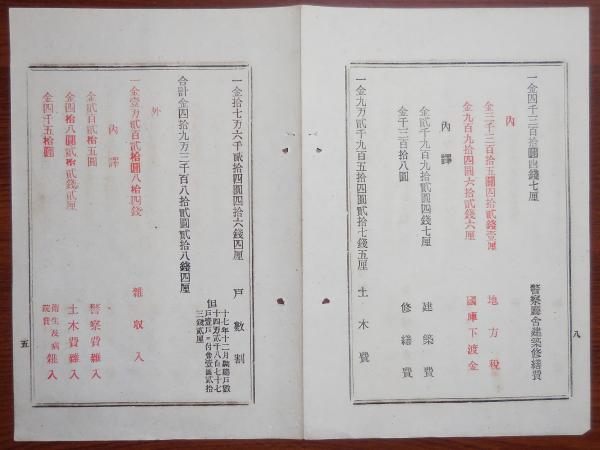 一金四千三百拾圓四錢七厘 警察廳舍建築修繕費
內
金三千三百拾五圓四拾貳錢壹厘 地方稅
金九百九拾四圓六拾貳錢六厘 國庫下渡金
內譯
金貳千九百九拾貳圓四錢七厘 建築費
金千三百拾八圓 修繕費
一金九万貳千九百五拾四圓貳拾七錢五厘 土木費
八
一金拾七万六千貳拾四圓四拾六錢四厘 戶數割
但
十七年十二月調總戶數
十四万貳千八百七十七
戶壹戶ニ付金壹圓貳拾
三錢貳厘
合計金四拾九万三千百八拾貳圓貳拾八錢四厘
外
一金壹万貳百貳拾圓八拾四錢 雜收入
內譯
金貳百貳拾五圓 警察費雜入
金四拾八圓貳拾貳錢貳厘 土木費雜入
金四千五拾圓 衛生及病院費雜入
五